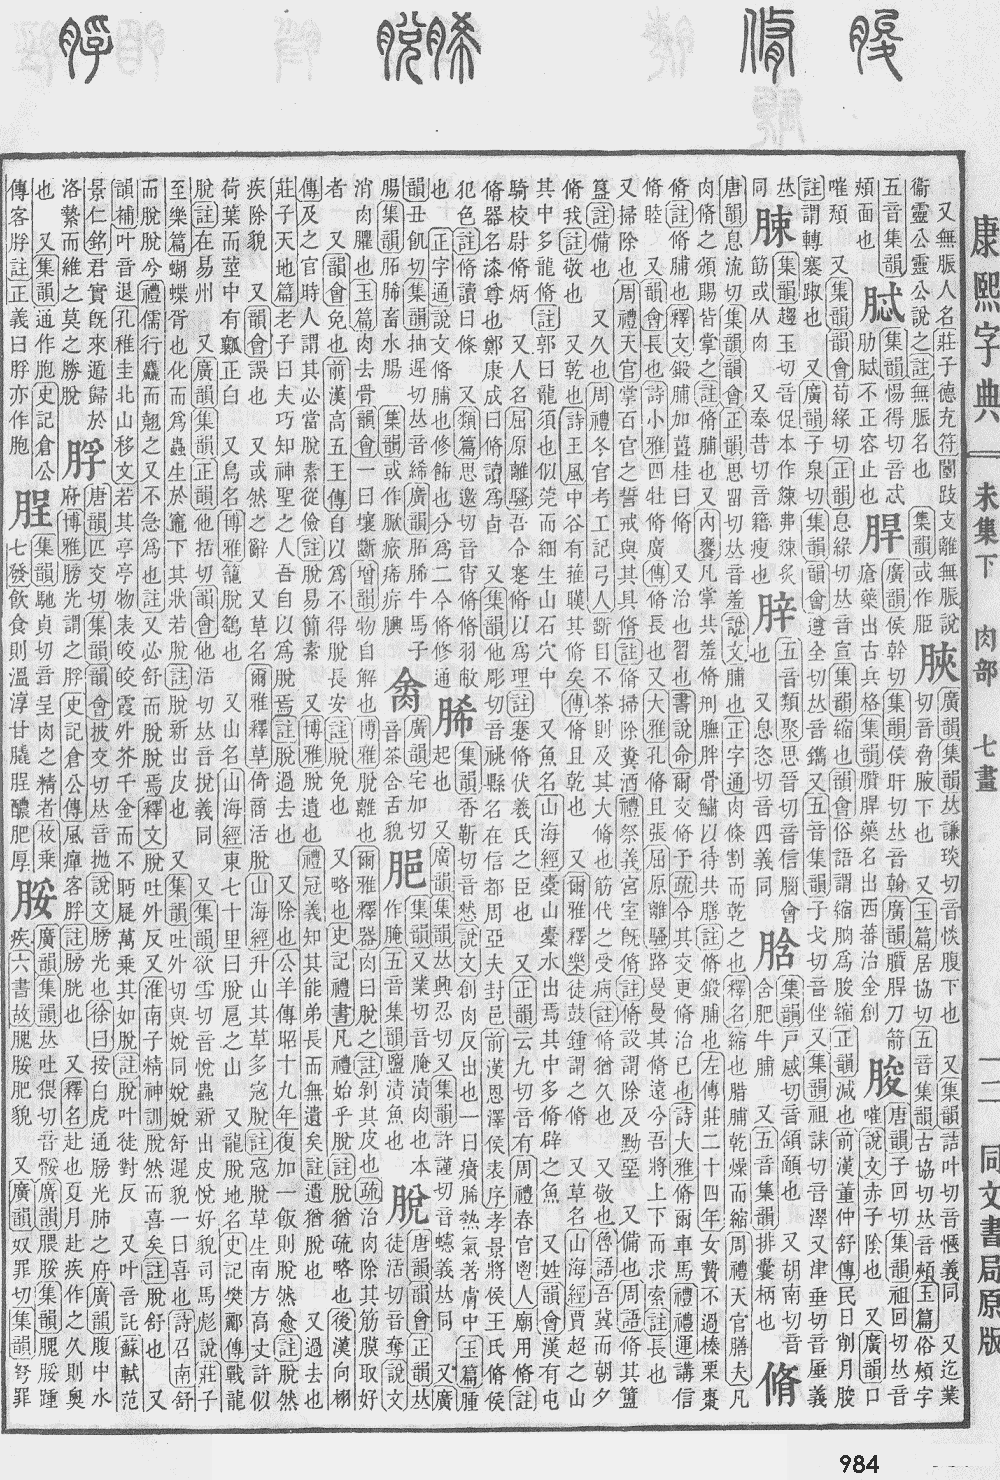 康熙字典
未集下
肉部
七畫
一二
同文書局原版
又無脤人名莊子德充符闉跂支離無脤說
衞靈公靈公說之註無脤名也 集韻或作
脥
廣韻集韻𠀤謙琰切音慊腹下也 又集韻詰叶切音愜義同 又迄業
切音脅腋下也 又玉篇居協切五音集韻古協切𠀤音頰玉篇俗頰字
五音集韻
頰面也
脦
集韻惕得切音忒
肋脦不正容止也
廣韻侯幹切集韻侯旰切𠀤音翰廣韻
瘡藥出古兵格集韻
藥名出西蕃治金創
朘
唐韻子回切集韻祖回切𠀤音
嗺說文赤子陰也 又廣韻口
嗺頹 又集韻韻會荀緣切正韻息緣切𠀤音宣集韻縮也韻會俗語謂縮朒爲朘縮正韻減也前漢董仲舒傳民日削月朘
註謂轉蹇踧也 又廣韻子泉切集韻韻會遵全切𠀤音鐫又五音集韻子戈切音侳又集韻祖誄切音濢又津垂切音厜義
𠀤
同
脨
集韻趨玉切音促本作
筋或从肉 又秦昔切音籍瘦也
五音類聚思晉切音信腦會
也 又息恣切音四義同
集韻戸感切音頷顄也 又五音集韻排囊柄也 又胡南切音
含肥牛脯
脩
唐韻息流切集韻韻會正韻思留切𠀤音羞說文脯也正字通肉條割而乾之也釋名縮也腊脯乾燥而縮周禮天官膳夫凡
肉脩之頒賜皆掌之註脩脯也 又內饔凡掌共羞脩刑膴胖骨鱐以待共膳註脩鍛脯也左傳莊二十四年女贄不過榛栗棗
脩註脩脯也釋文鍛脯加薑桂曰脩 又治也習也書說命爾交脩予疏令其交更脩治已也詩大雅脩爾車馬禮禮運講信
脩睦 又韻會長也詩小雅四牡脩廣傳脩長也又大雅孔脩且張屈原離騷路曼曼其脩遠兮吾將上下而求索註長也
又掃除也周禮天官掌百官之誓戒與其具脩註脩掃除糞洒禮祭義宮室旣脩註脩設謂除及黝堊 又備也周語脩其簠
簋註備也 又久也周禮冬官考工記弓人斲目不荼則及其大脩也筋代之受病註脩猶久也 又敬也魯語吾冀而朝夕
脩我註敬也 又乾也詩王風中谷有蓷暵其脩矣傳脩且乾也 又爾雅釋樂徒鼓鍾謂之脩 又草名山海經賈超之山
其中多龍脩註郭曰龍須也似莞而細生山石穴中 又魚名山海經橐山橐水出焉其中多脩辟之魚 又姓韻會漢有屯
騎校尉脩炳 又人名屈原離騷吾令蹇脩以爲理註蹇脩伏羲氏之臣也 又正韻云九切音有周禮春官鬯人廟用脩註
脩器名漆尊也鄭康成曰脩讀爲卣 又集韻他彫切音祧縣名在信都周亞夫封邑前漢恩澤侯表序孝景將侯王氏脩侯
犯色註脩讀曰條 又類篇思邀切音宵脩脩羽敝
也 正字通說文脩脯也修飾也分爲二今脩修通
脪
集韻香靳切音焮說文創肉反出也一曰瘡脪熱氣著膚中玉篇腫
起也 又廣韻集韻𠀤興忍切又集韻許謹切音蠵義𠀤同 又廣
韻丑飢切集韻抽遲切𠀤音絺廣韻胏脪牛馬子
腸集韻胏脪畜水腸 集韻或作
消肉臞也玉篇肉去骨韻會一曰壞斷增韻物自解也博雅脫離也爾雅釋器肉曰脫之註剝其皮也疏治肉除其筋膜取好
者 又韻會免也前漢高五王傳自以爲不得脫長安註脫免也 又略也史記禮書凡禮始乎脫註脫猶疏略也後漢向栩
脫
唐韻韻會正韻𠀤
徒活切音奪說文
傳及之官時人謂其必當脫素從儉註脫易簡素 又博雅脫遺也禮冠義知其能弟長而無遺矣註遺猶脫也 又過去也
莊子天地篇老子曰夫巧知神聖之人吾自以爲脫焉註脫過去也 又除也公羊傳昭十九年復加一飯則脫然愈註脫然
疾除貌 又韻會誤也 又或然之辭 又草名爾雅釋草倚商活脫山海經升山其草多寇脫註寇脫草生南方高丈許似
荷葉而莖中有瓤正白 又鳥名博雅籠脫鷂也 又山名山海經東七十里曰脫扈之山 又龍脫地名史記樊酈傳戰龍
脫註在易州 又廣韻集韻正韻他括切韻會他活切𠀤音挩義同 又集韻欲雪切音悅蟲新出皮悅好貌司馬彪說莊子
至樂篇蝴蝶胥也化而爲蟲生於竈下其狀若脫註脫新出皮也 又集韻吐外切與娧同娧娧舒遲貌一曰喜也詩召南舒
而脫脫兮禮儒行麤而翹之又不急爲也註又必舒而脫脫焉釋文脫吐外反又淮南子精神訓脫然而喜矣註脫舒也 又
韻補叶音退孔稚圭北山移文若其亭亭物表皎皎霞外芥千金而不眄屣萬乘其如脫註脫叶徒對反 又叶音託蘇軾范
景仁銘君實旣來遁歸於
洛縶而維之莫之勝脫
脬
唐韻匹交切集韻韻會披交切𠀤音拋說文膀光也徐曰按白虎通膀光肺之府廣韻腹中水
府博雅膀光謂之脬史記倉公傳風癉客脬註膀胱也 又釋名赴也夏月赴疾作之久則臭
也 又集韻通作胞史記倉公
傳客脬註正義曰脬亦作胞
脭
集韻馳貞切音呈肉之精者枚乘
七發飲食則溫淳甘膬脭醲肥厚
脮
廣韻集韻𠀤吐猥切音骽廣韻腲脮集韻腲脮踵
疾六書故腲脮肥貌 又廣韻奴罪切集韻弩罪
984